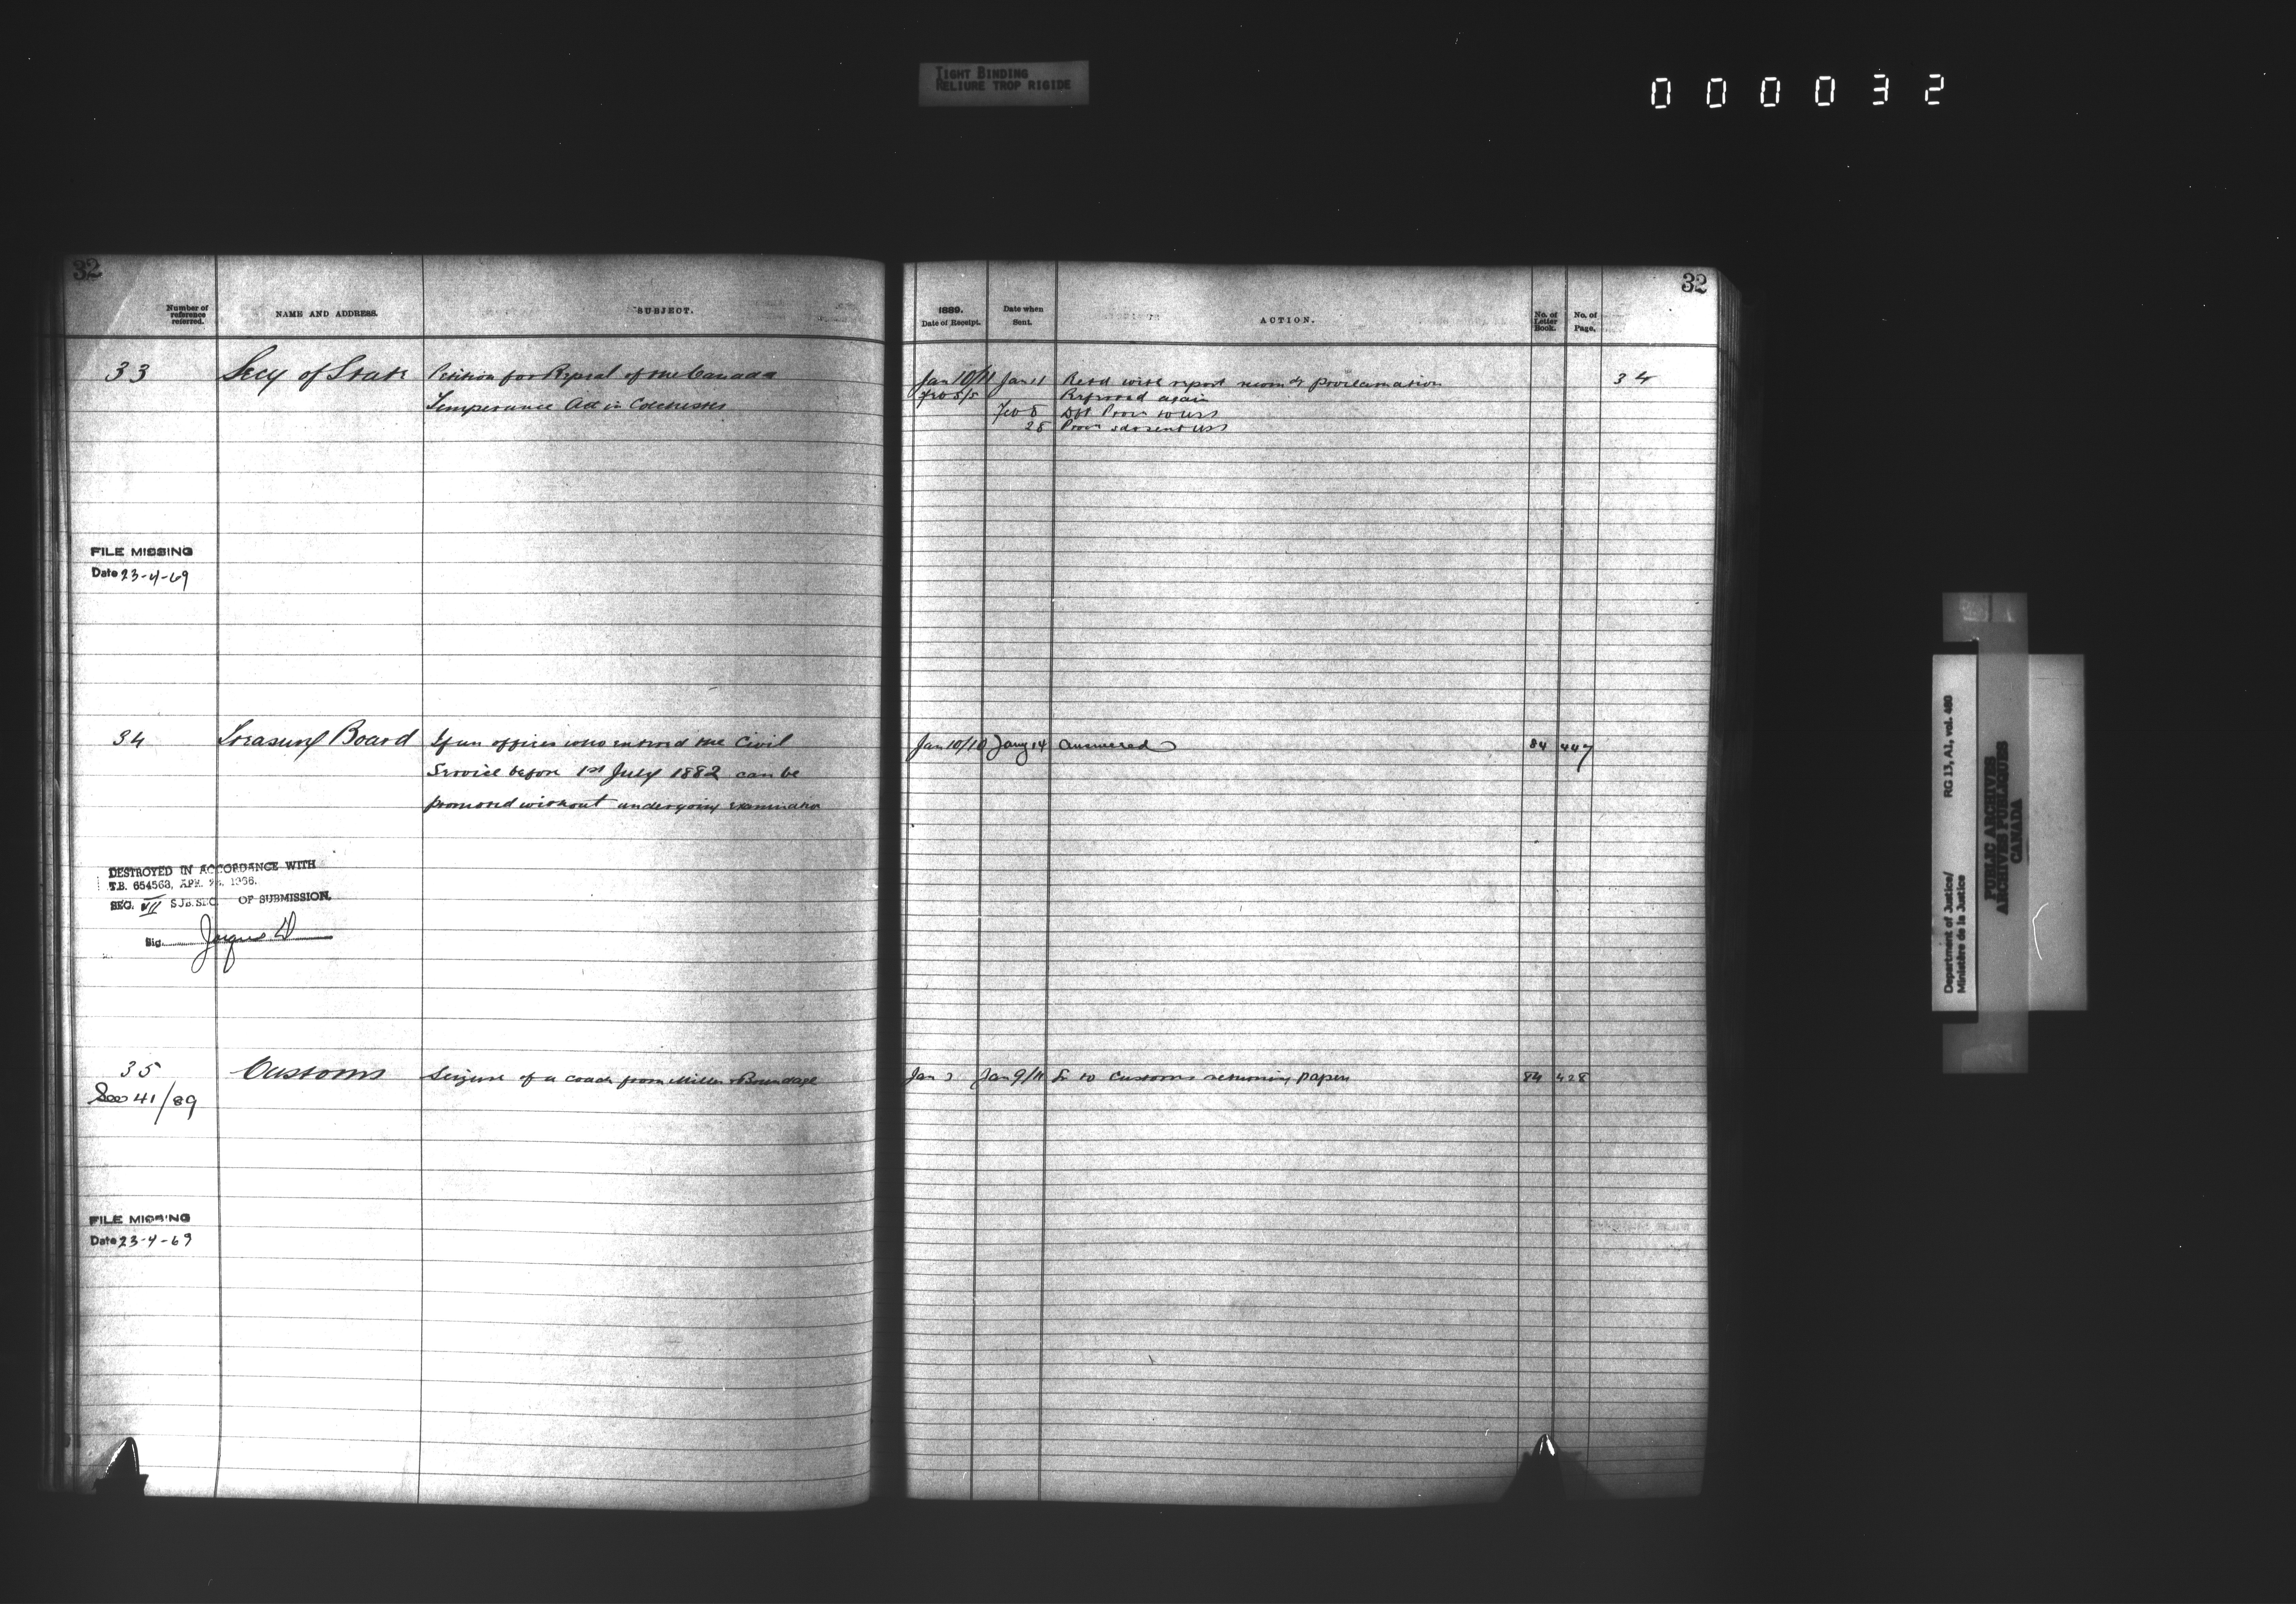 TIGHT BINDING
RELIURE TROP RIGIDE
000032
32
Number of reference referred.
NAME AND ADDRESS.
SUBJECT.
33
Secy of State
Petition for Repeal of the Canada
Temperance Act in Colchester
FILE MISSING
Date 23-4-69
34
Treasury Board
If an officer who entered the Civil
Service before 1st July 1882 can be
promoted without undergoing examination
DESTROYED IN ACCORDANCE WITH
T.B. 654563, APR. 1966.
SEC. VII SUB. SEC. OF SUBMISSION.
Sig.
35
See 41/89
Customs
Seizure of a coach from Miller & Brundage
FILE MISSING
Date 23-4-69
32
1889.
Date of Receipt.
Date when Sent.
ACTION.
No. of Letter Book.
No. of Page.
Jan 10/11 Jan 11 Retd with report recomdg proclamation 34
Feb 5/5 Referred again
Feb 8 Dft Procn to USS
28
Jan 10/10 Jany 14 Answered 84 447
Jan 9/11 L to Customs returning papers 84 428
Department of Justice/
Ministère de la Justice
RG 13, A1, vol. 480
PUBLIC ARCHIVES
ARCHIVES PUBLIQUES
CANADA